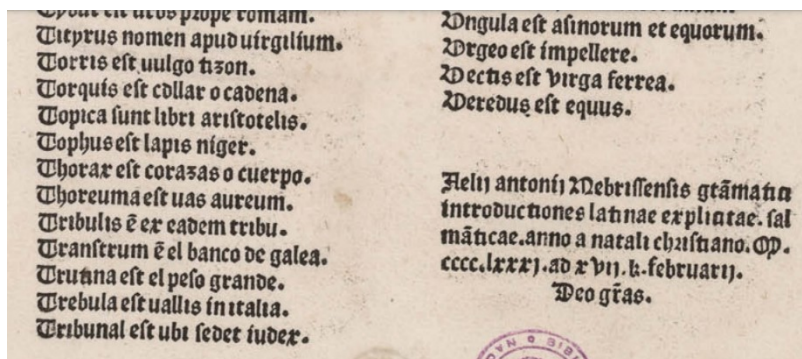 Tybur est urbs prope romam.
Tityrus nomen apud uirgilium.
Torris est uulgo tizon.
Torquis est collar o cadena.
Topica sunt libri aristotelis.
Tophus est lapis niger.
Thorax est corazas o cuerpo.
Thoreuma est uas aureum.
Tribulis ē ex eadem tribu.
Transtrum ē el banco de galea.
Trutina est el peso grande.
Trebula est uallis in italia.
Tribunal est ubi sedet iudex.
Ungula est asinorum et equorum.
Urgeo est impellere.
Vectis est virga ferrea.
Veredus est equus.
Aelij antonij Nebrissensis grāmatici
introductiones latinae explicitae. sal
māticae. anno a natali christiano. M.
cccc.lxxxj. ad xvij. k. februarij.
Deo gr̄as.